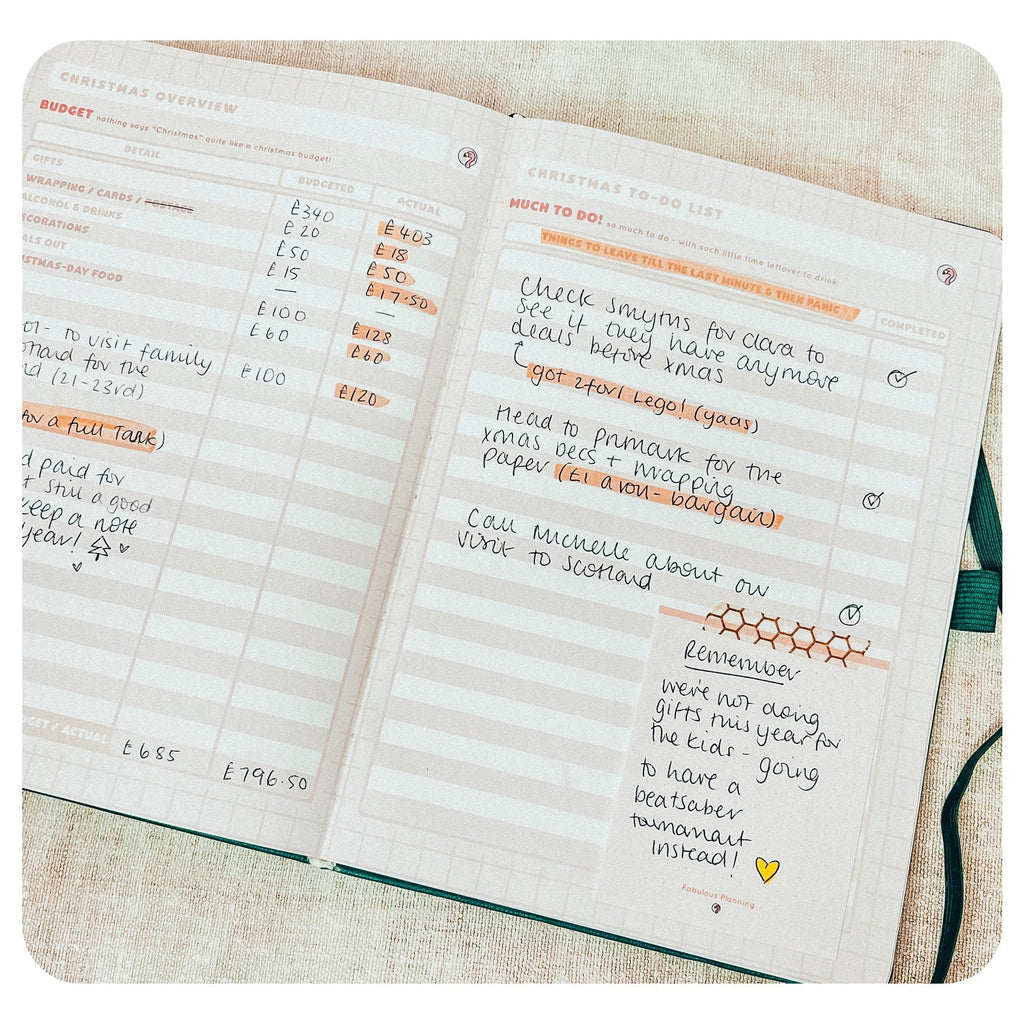 CHRISTMAS OVERVIEW
BUDGET nothing says "Christmas" quite like a christmas budget!
DETAIL
BUDGETED
ACTUAL
GIFTS
£340
£403
WRAPPING / CARDS / POSTAGE
£20
£18
ALCOHOL & DRINKS
£50
£50
ECORATIONS
£15
£17.50
ALS OUT
—
—
STMAS-DAY FOOD
£100
£128
£60
£60
- to visit family
for the
(21-23rd)
£100
£120
for a full Tank)
d paid for
t still a good
keep a note
year!
GET / ACTUAL
£685
£796.50
CHRISTMAS TO-DO LIST
MUCH TO DO! so much to do - with such little time leftover to drink
THINGS TO LEAVE TILL THE LAST MINUTE & THEN PANIC
COMPLETED
Check Smyths for Clara to
see if they have anymore
deals before xmas
got 2for1 Lego! (yaas)
Head to Primark for the
xmas Decs + wrapping
paper (£1 a roll - bargain)
Call Michelle about our
visit to Scotland
Remember
we're not doing
gifts this year for
the kids - going
to have a
beatsaber
tournament
instead!
Fabulous Planning